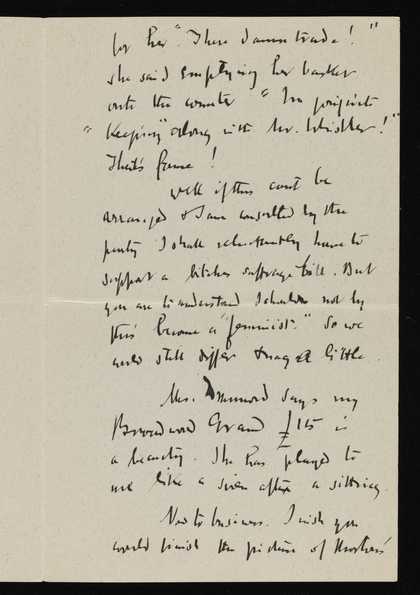 for her. "There damn trade!"
she said emptying her basket
onto the counter "I'm going to
"Keeping" along with Mr. Whistler!"
That's fame!
Well if this can't be
arranged & I am consulted by the
party I shall reluctantly have to
support a bitches suffrage bill. But
you are to understand I shall not by
this become a "feminist." So we
could still differ & nag a little.
Mrs. Drummond says my
Broadwood Grand £115 is
a beauty. She has played to
me like a siren after a sitting.
Now to business. I wish you
would finish the picture of